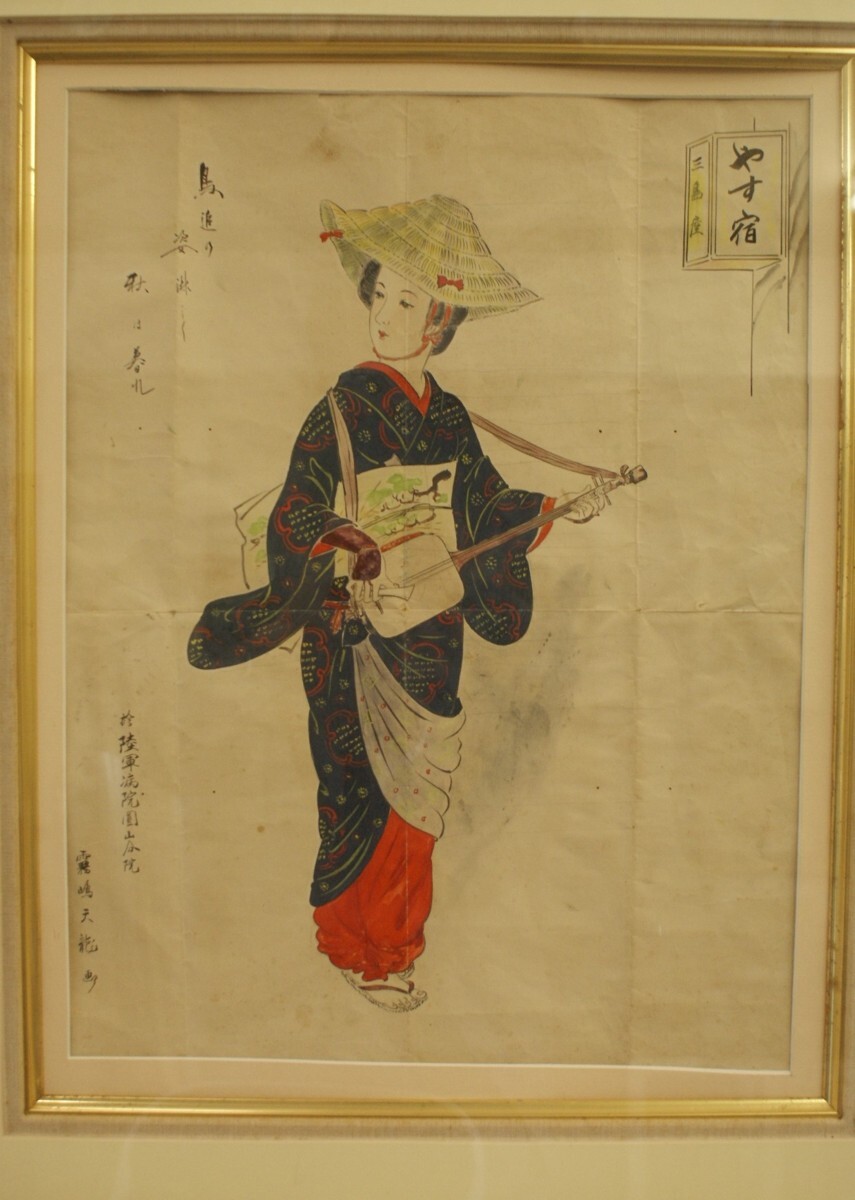 やす宿
三島屋
鳥追の
姿淋し
秋は暮れ
於陸軍病院圓山分院
霧嶋天龍画